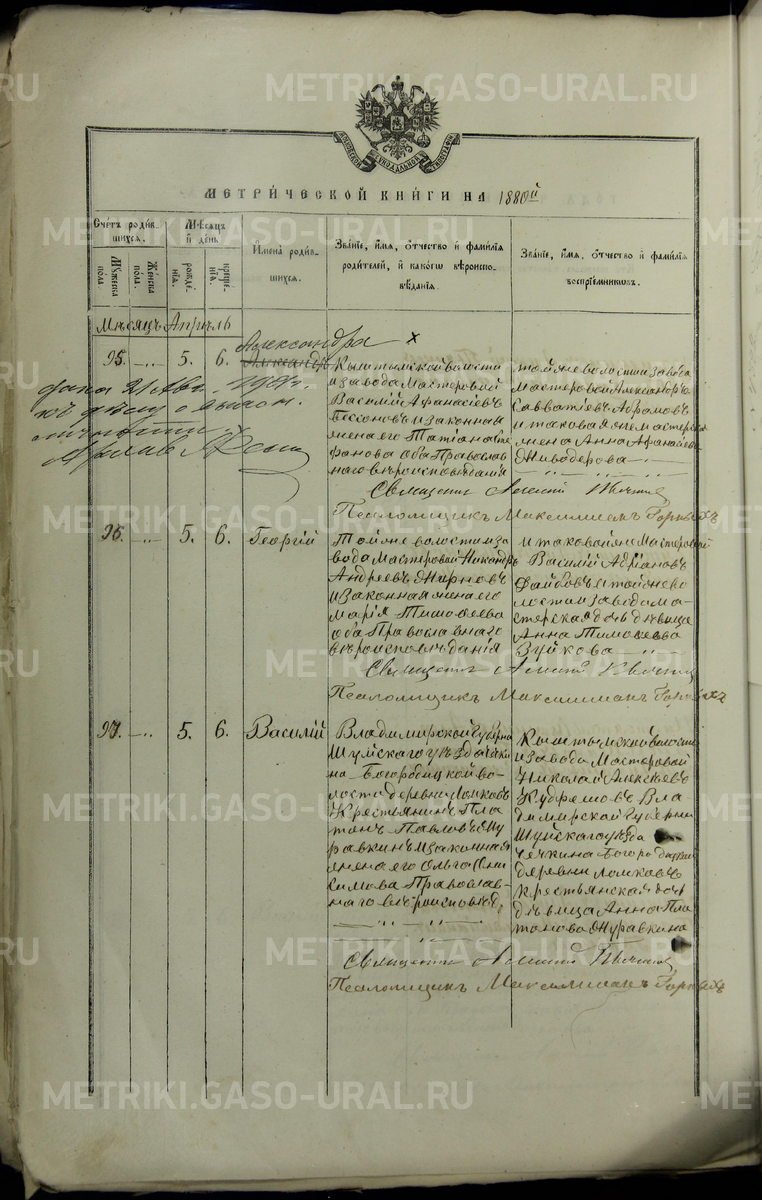 METRIKI.GASO-URAL.RU
МОСКОВСКОЙ СѴНОДАЛЬНОЙ ТИПОГРАФІИ
МЕТРИ́ЧЕСКОЙ КНИ́ГИ НА 1880й
Счетъ роди́вшихся.
Мѣсяцъ и день
Имена роди́вшихся.
Званіе, имя, отчество и фамилія родителей, и какогѡ вѣроисповѣданія.
Званіе, имя, отчество и фамилія воспріемниковъ.
Мужеска пола.
Женска пола.
рожденія.
крещенія.
Мѣсяцъ Апрѣль
95. 5. 6.
Александра
Кыштымской волости
и завода Мастеровой
Василій Афанасіевъ
Бессоновъ и законная
жена его Татіана Сте
фанова оба Православ
наго вѣроисповѣданія
той же волости и завода
Мастеровой Александръ
Савватіевъ Абрамовъ
и таковая же мастерск
жена Анна Афанасіева
Живодерова
Священникъ Алексій
Псаломщикъ Максимилианъ Горныхъ
96. 5. 6. Георгій
Той же волости и за
вода Мастеровой Никандръ
Андреевъ Жирновъ
и законная жена его
Марія Тимофеева
оба Православнаго
вѣроисповѣданія
и таковой же Мастеровой
Василій Адріановъ
и той же во
лости и завода ма-
стерская дочь дѣвица
Анна Тимофеева
Зуйкова
Священникъ Алексій
Псаломщикъ Максимилианъ Горныхъ
97. 5. 6. Василій
Владимирской Губерн
Шуйскаго уѣзда Чечки
на-Богородицкой во-
лости деревни Ломковъ
Крестьянинъ Пла
тонъ Павловъ Жу
равкинъ и законная
жена его Ольга
кимова Православ-
наго вѣроисповѣд.
Кыштымской волости
и завода Мастеровой
Николай Алексѣевъ
Кудряшовъ Вла
димирской Губерни
Шуйскаго уѣзда
Чечкина Богородицкой
деревни Ломковъ
крестьянская дочь
дѣвица Анна Пла
тонова Журавкина
Священникъ Алексій
Псаломщикъ Максимилианъ Горныхъ